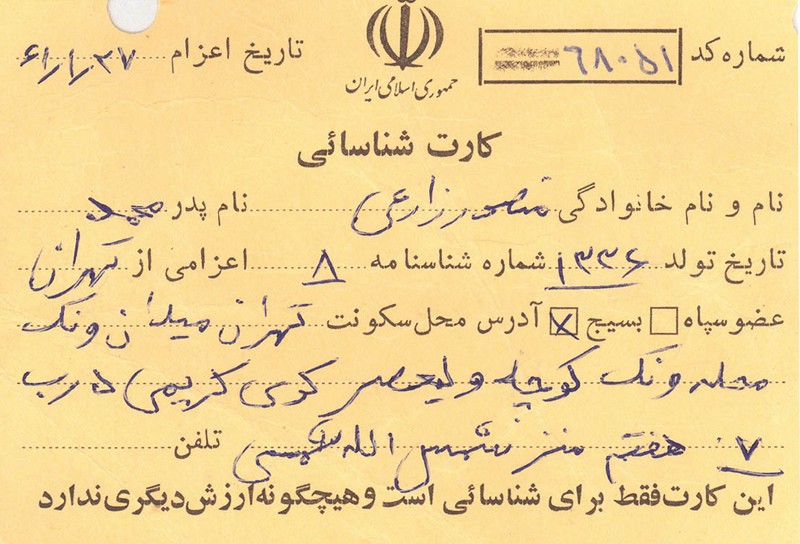 شماره کد ۶۸۰۵۱
جمهوری اسلامی ایران
تاریخ اعزام ۶۱/۱/۲۷
کارت شناسائی
نام و نام خانوادگی منصور زارعی نام پدر محمد
تاریخ تولد ۱۳۳۶ شماره شناسنامه ۸ اعزامی از تهران
عضو سپاه بسیج آدرس محل سکونت تهران میدان ونک
محله ونک کوچه ولیعصر کوی کریمی درب
۷ هفتم منزل شمس الله تلفن
این کارت فقط برای شناسائی است و هیچگونه ارزش دیگری ندارد